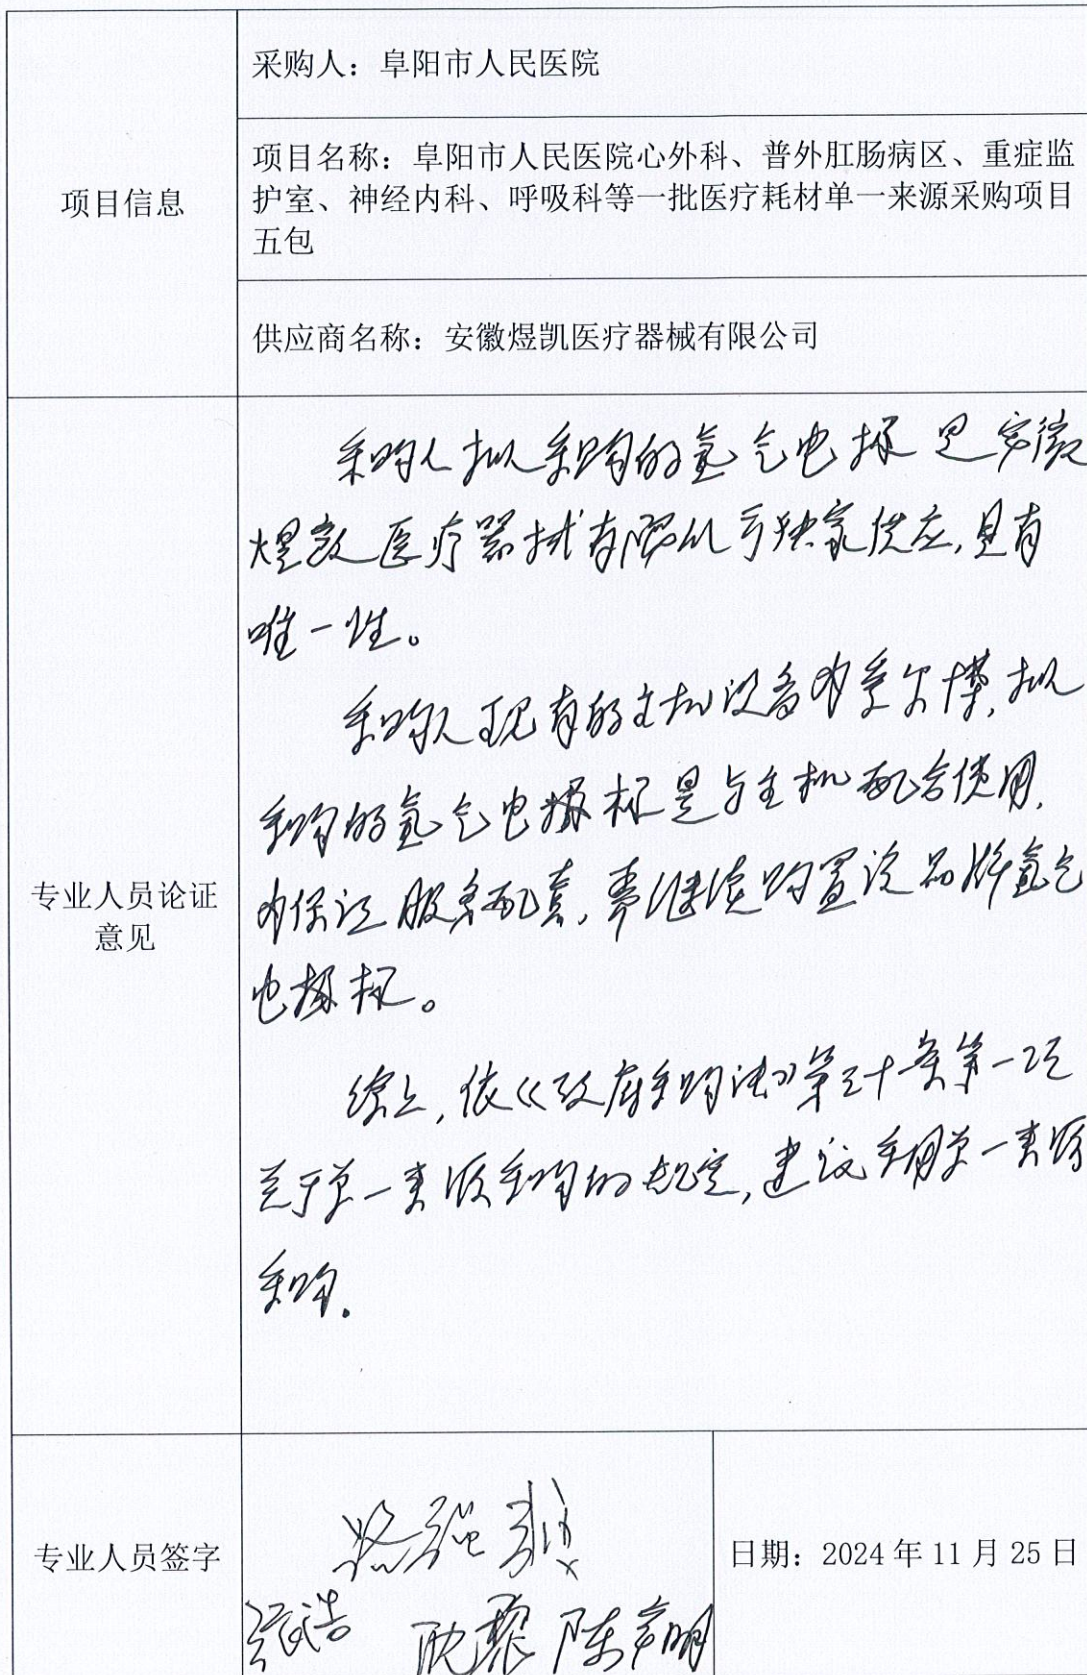 采购人：阜阳市人民医院
项目名称：阜阳市人民医院心外科、普外肛肠病区、重症监
护室、神经内科、呼吸科等一批医疗耗材单一来源采购项目
五包
项目信息
供应商名称：安徽煜凯医疗器械有限公司
采购人拟采购的氩气电极 是安徽
医疗器械有限公司独家供应，具有
唯一性。
采购人现有的主机设备为爱尔博，拟
采购的氩气电极是与主机配合使用，
为保证服务配套，需继续购置该品牌氩气
电极。
综上，依《政府采购法》第三十一条第一项
关于单一来源采购的规定，建议采用单一来源
采购.
专业人员论证
意见
专业人员签字
张浩 耿黎
日期：2024年11月25日